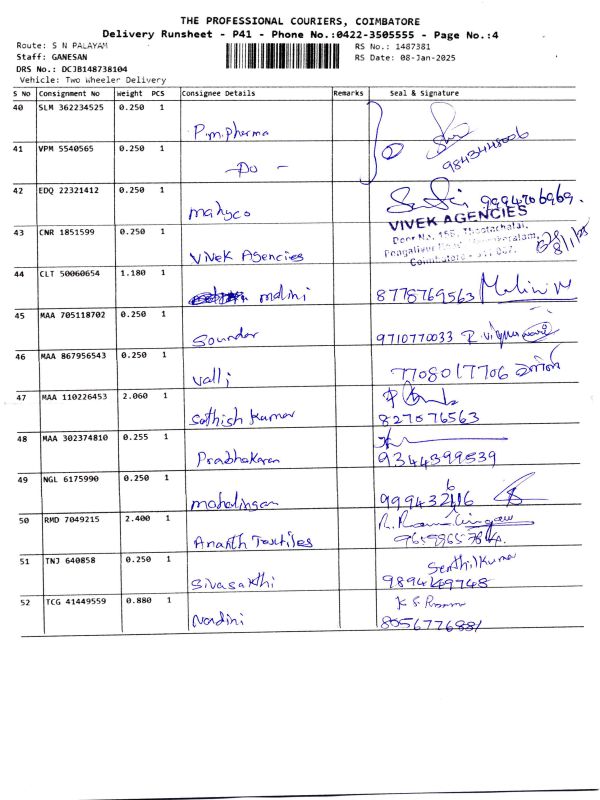 THE PROFESSIONAL COURIERS, COIMBATORE
Delivery Runsheet - P41 - Phone No.:0422-3505555 - Page No.:4
Route: S N PALAYAM RS No.: 1487381
Staff: GANESAN RS Date: 08-Jan-2025
DRS No.: DCJB148738104
Vehicle: Two Wheeler Delivery
S No Consignment No Weight PCS Consignee Details Remarks Seal & Signature
40 SLM 362234525 0.250 1
P.m.pharma
9843448006
41 VPM 5540565 0.250 1
-Do-
42 EDQ 22321412 0.250 1
mahyco
9994706969.
43 CNR 1851599 0.250 1
VIVEK AGENCIES
Vivek Agencies
44 CLT 50060654 1.180 1
malini 8778769563 Malini M
45 MAA 705118702 0.250 1
Soundar 9710770033
46 MAA 867956543 0.250 1
Valli 7708017706
47 MAA 110226453 2.060 1
Sathish Kumar 827076563
48 MAA 302374810 0.255 1
Prabhakaran 9344399539
49 NGL 6175990 0.250 1
mahalingan
50 RMD 7049215 2.400 1
Ananth Textiles
51 TNJ 640858 0.250 1
Senthilkumar
Sivasakthi 9894149748
52 TCG 41449559 0.880 1
K S Ram
Nandini 8056776881